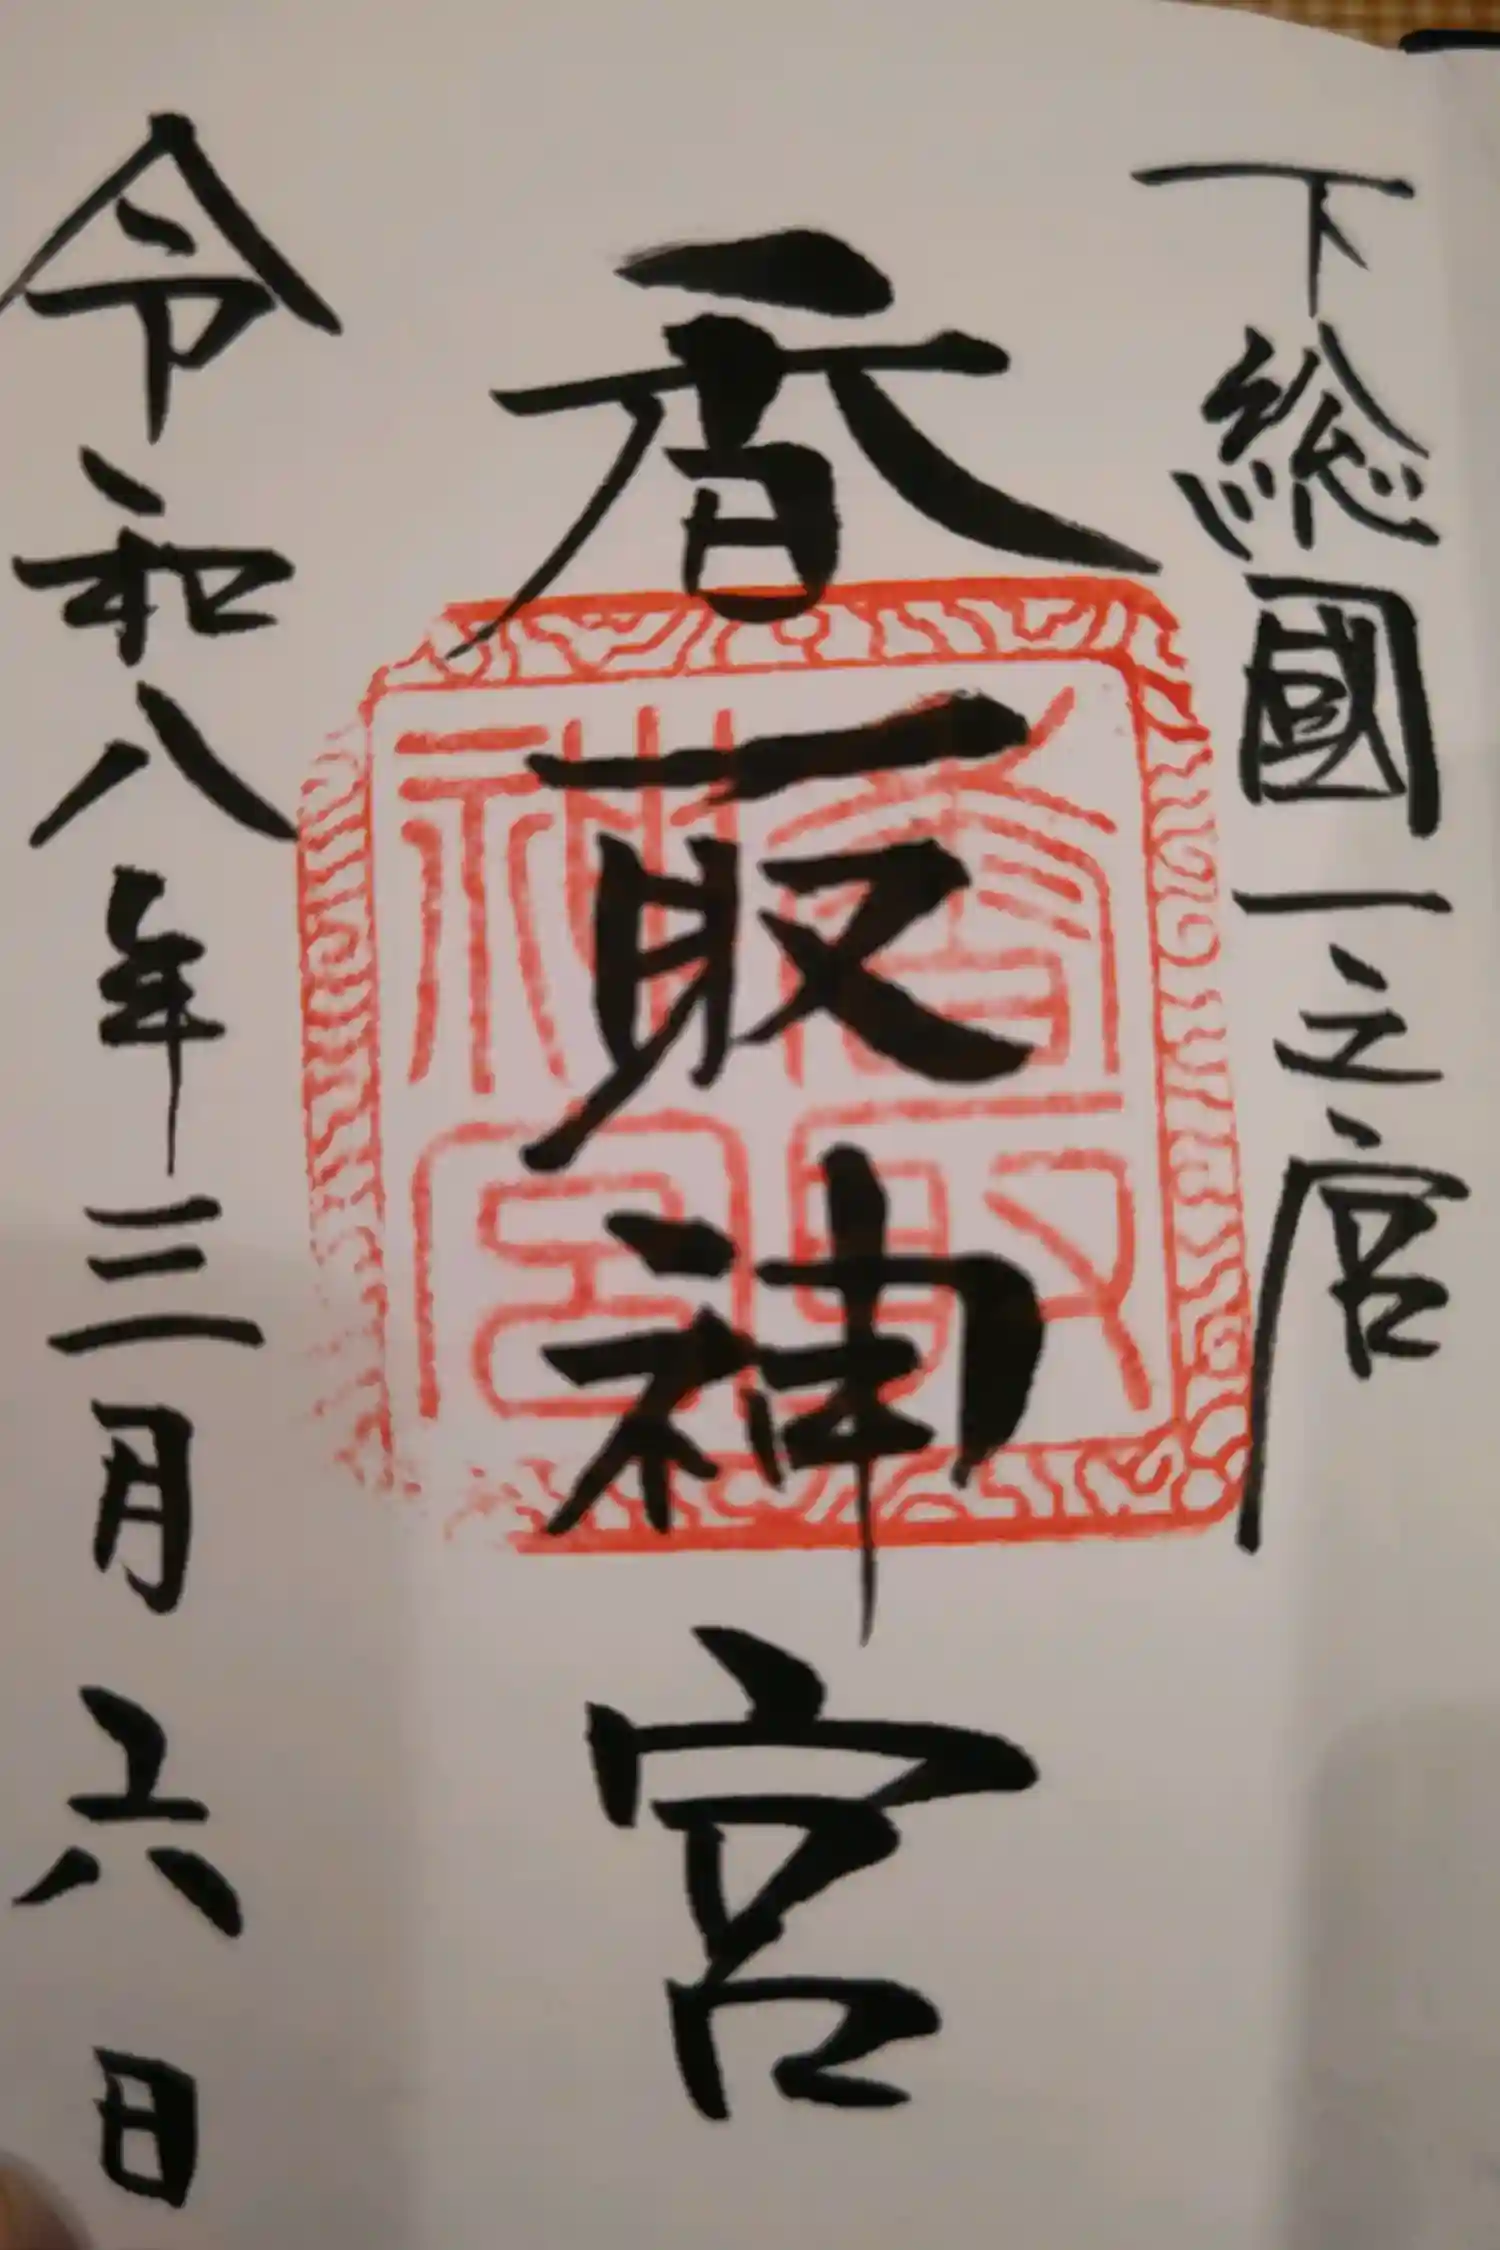 下総國一之宮
香取神宮
香取神宮
令和八年三月六日